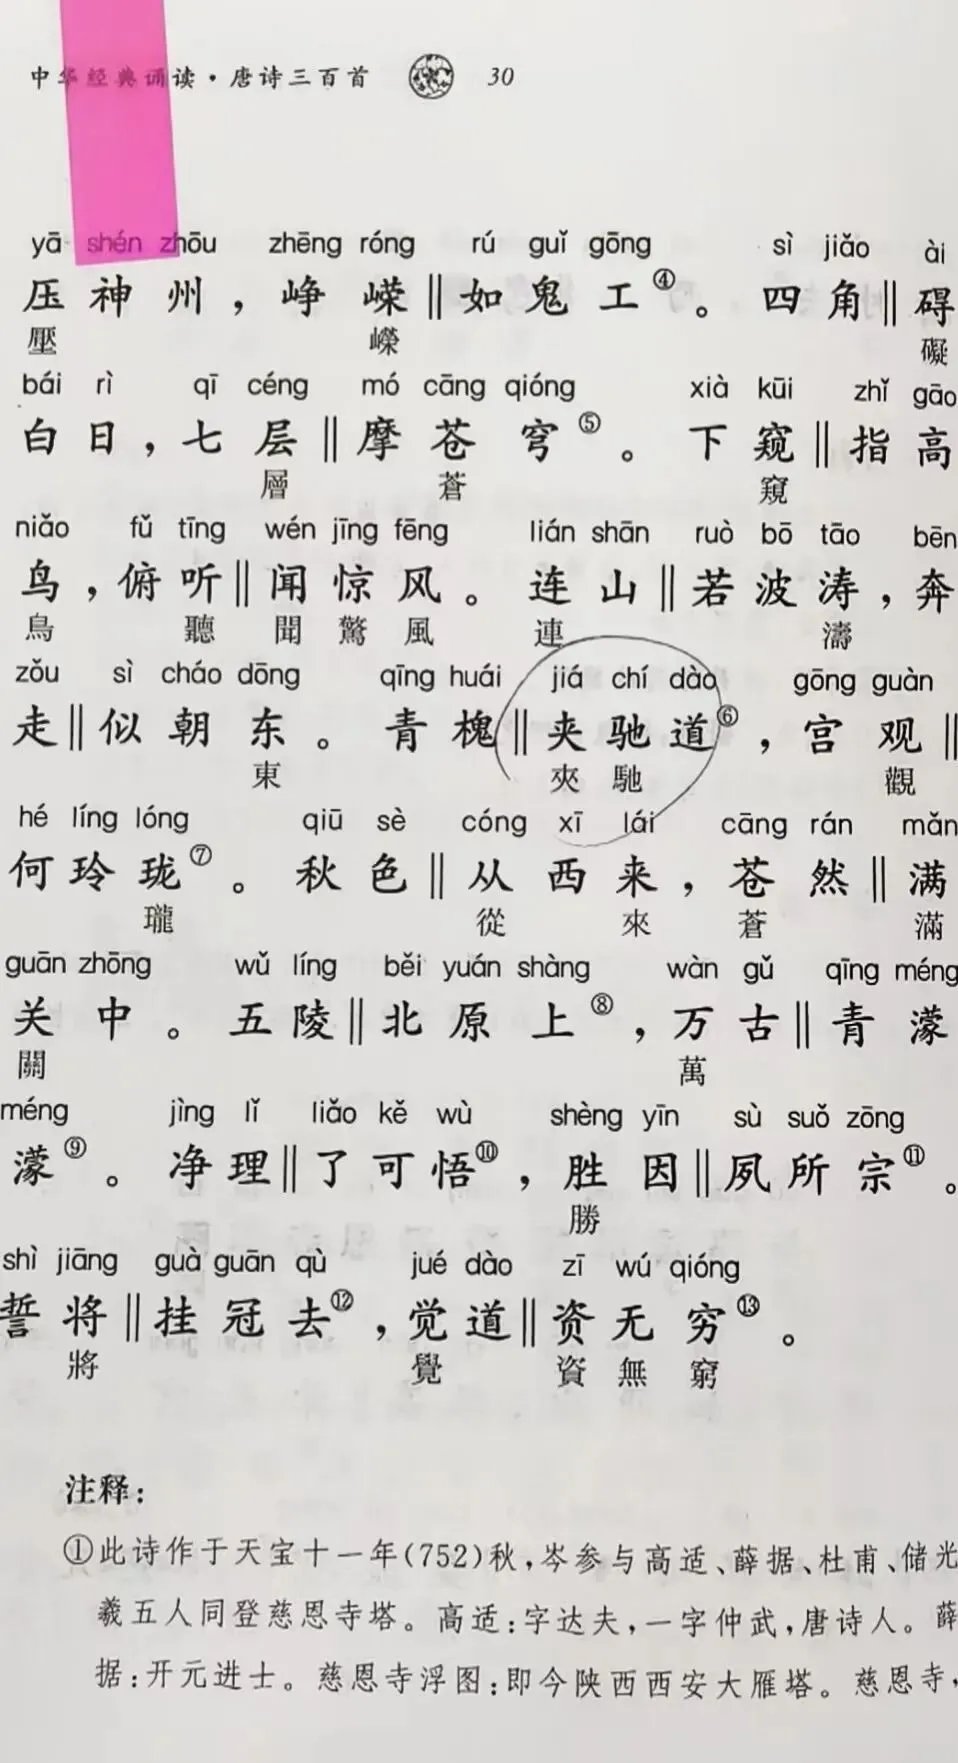 中华经典诵读·唐诗三百首 30
yā shén zhōu zhēng róng rú guǐ gōng sì jiǎo ài
压神州，峥嵘‖如鬼工④。四角‖碍
壓 嶸 礙
bái rì qī céng mó cāng qióng xià kūi zhǐ gāo
白日，七层‖摩苍穹⑤。下窥‖指高
層 蒼 窺
niǎo fǔ tīng wén jīng fēng lián shān ruò bō tāo bēn
鸟，俯听‖闻惊风。连山‖若波涛，奔
鳥 聽 聞 驚 風 連 濤
zǒu sì cháo dōng qīng huái jiá chí dào gōng guàn
走‖似朝东。青槐‖夹驰道⑥，宫观‖
東 夾 馳 觀
hé líng lóng qiū sè cóng xī lái cāng rán mǎn
何玲珑⑦。秋色‖从西来，苍然‖满
瓏 從 來 蒼 滿
guān zhōng wǔ líng běi yuán shàng wàn gǔ qīng méng
关中。五陵‖北原上⑧，万古‖青濛
關 萬
méng jìng lǐ liǎo kě wù shèng yīn sù suǒ zōng
濛⑨。净理‖了可悟⑩，胜因‖夙所宗⑪。
勝
shì jiāng guà guān qù jué dào zī wú qióng
誓将‖挂冠去⑫，觉道‖资无穷⑬。
將 覺 資 無 窮
注释：
①此诗作于天宝十一年(752)秋，岑参与高适、薛据、杜甫、储光
羲五人同登慈恩寺塔。高适：字达夫，一字仲武，唐诗人。薛
据：开元进士。慈恩寺浮图：即今陕西西安大雁塔。慈恩寺，